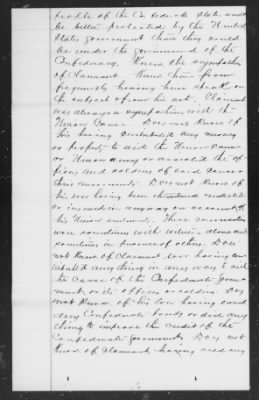 people of the Confederate States would
be better protected by the United
States government than they could
be under the government of the
Confederacy. Knew the sympathies
of Claimant. Knew them from
frequently hearing him speak on
the subject & from his acts. Claimant
was always a sympathizer with the
Union Cause. Does not know of
his having contributed any money
or property to aid the Union cause
or Union army or assisted the of-
ficers and soldiers of said cause in
their movements. Does not know of
his ever having been threatened molested
or injured in any way on account of
his Union sentiments. These conversations
were sometimes with witness alone and
sometimes in presence of others. Does
not know of Claimant ever having con-
tributed any thing in any way to aid
the cause of the Confederate Govern-
ment or its officers or soldiers. Does
not know of his ever having owned
any Confederate bonds or did any
thing to improve the credit of the
Confederate government. Does not
know of Claimant having used any